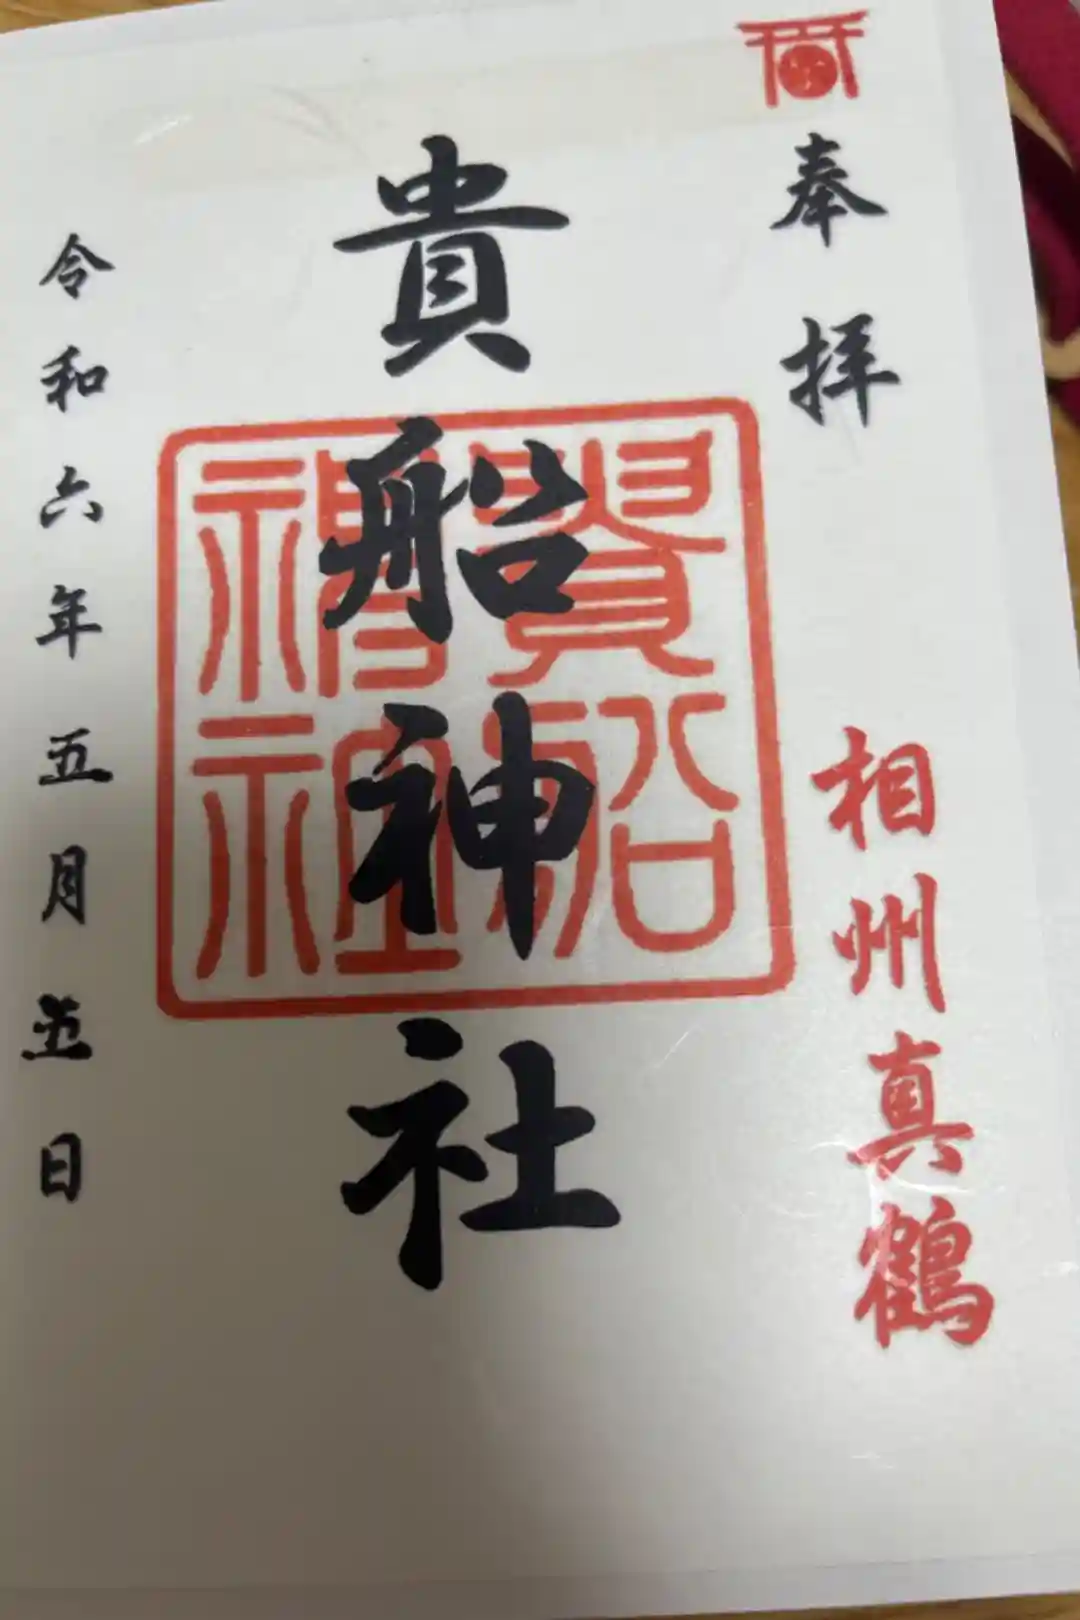 奉拝
相州真鶴
貴船神社
貴船
神社
令和六年五月五日